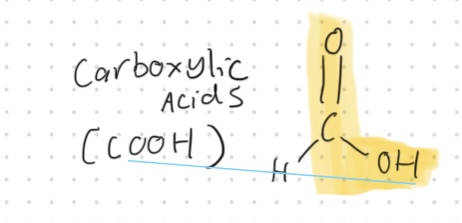 Carboxylic
Acids
(COOH)
O
C
H
OH